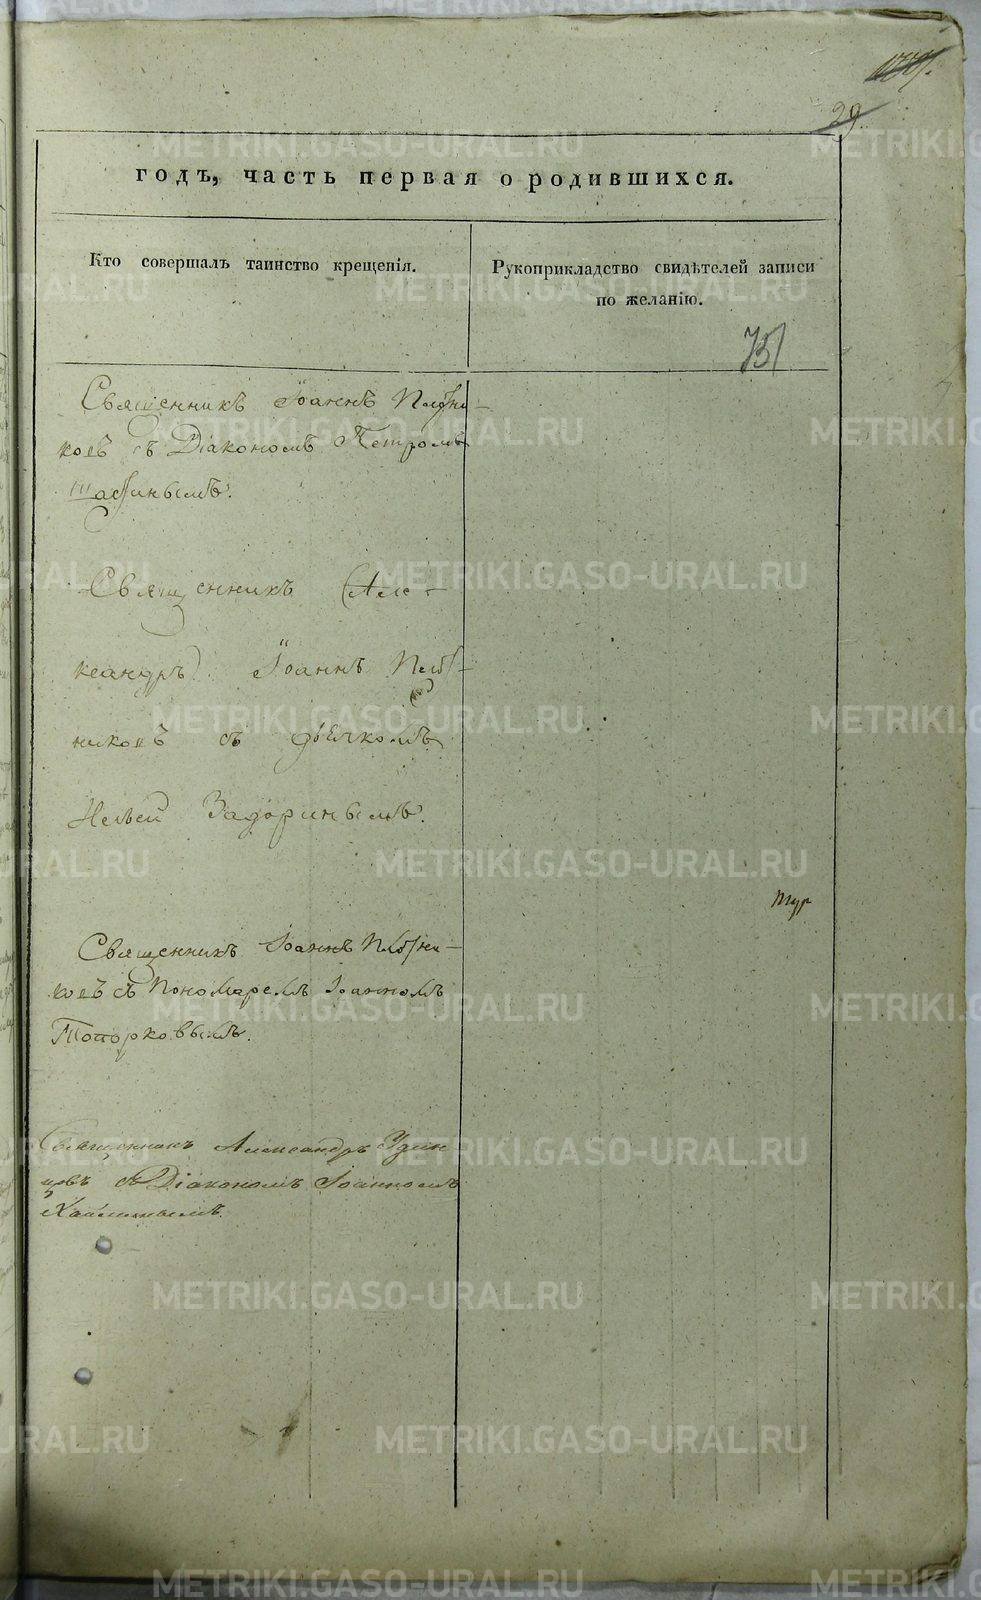 29
годъ, часть первая о родившихся.
Кто совершалъ таинство крещенія.
Рукоприкладство свидѣтелей записи
по желанію.
751
Священникъ Іоаннъ Плотни-
ковъ съ Діакономъ Петромъ
Священникъ (Але-
ксандръ) Іоаннъ Плот-
никовъ съ дьячкомъ
Задоринымъ.
Священникъ Іоаннъ Плотни-
ковъ съ Пономаремъ Іоанномъ
Топорковымъ.
Священникъ Александръ Удин
цовъ съ Діакономъ Іоанномъ
METRIKI.GASO-URAL.RU